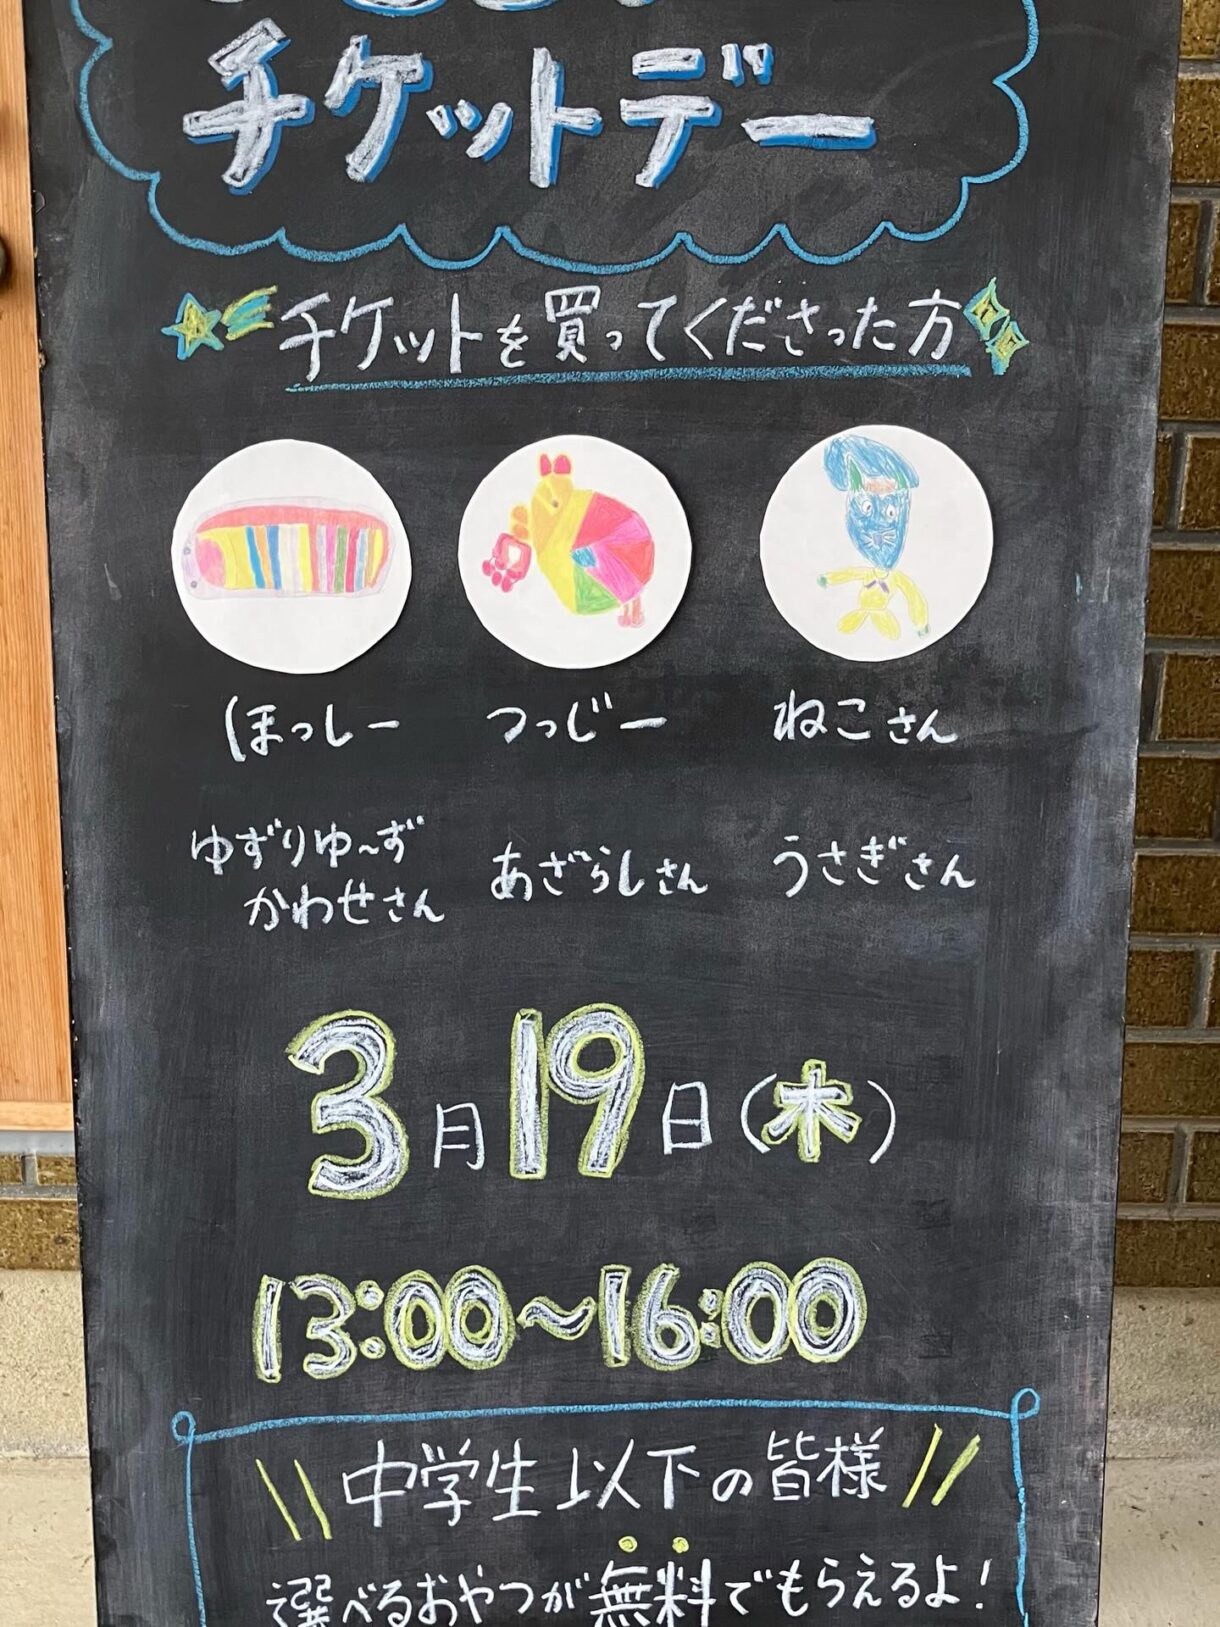 チケットデー
チケットを買ってくださった方
ほっしー
つっじー
ねこさん
ゆずりゆ〜ず
かわせさん
あざらしさん
うさぎさん
3月19日(木)
13:00〜16:00
中学生以下の皆様
選べるおやつが無料でもらえるよ!